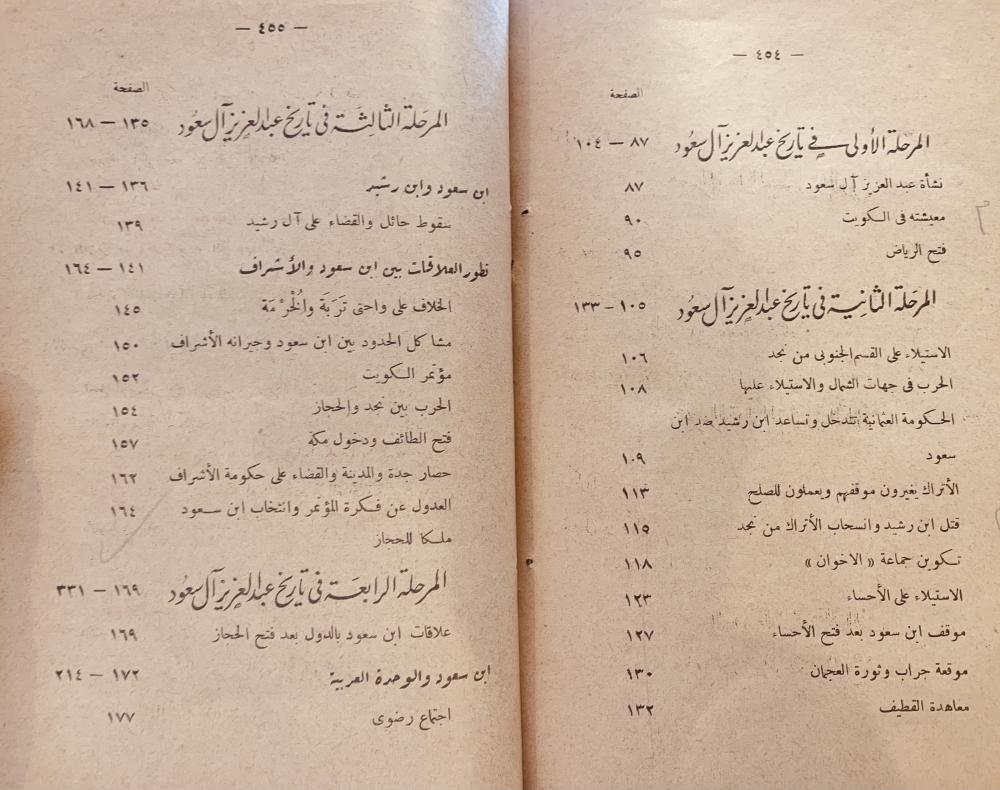 — ٤٥٤ —
الصفحة
المرحلة الأولى في تاريخ عبدالعزيز آل سعود ٨٧ — ١٠٤
نشأة عبد العزيز آل سعود ٨٧
معيشته فى الكويت ٩٠
فتح الرياض ٩٥
المرحلة الثانية فى تاريخ عبدالعزيز آل سعود ١٠٥ — ١٣٣
الاستيلاء على القسم الجنوبى من نجد ١٠٦
الحرب فى جهات الشمال والاستيلاء عليها ١٠٨
الحكومة العثمانية تتدخل وتساعد ابن رشيد ضد ابن
سعود ١٠٩
الأتراك يغيرون موقفهم ويعملون للصلح ١١٣
قتل ابن رشيد وانسحاب الأتراك من نجد ١١٥
تكوين جماعة « الاخوان » ١١٨
الاستيلاء على الأحساء ١٢٣
موقف ابن سعود بعد فتح الأحساء ١٢٧
موقعة جراب وثورة العجمان ١٣٠
معاهدة القطيف ١٣٢
— ٤٥٥ —
الصفحة
المرحلة الثالثة فى تاريخ عبدالعزيز آل سعود ١٣٥ — ١٦٨
ابن سعود وابن رشيد ١٣٦ — ١٤١
سقوط حائل والقضاء على آل رشيد ١٣٩
تطور العلاقات بين ابن سعود والأشراف ١٤١ — ١٦٤
الخلاف على واحتى تَرَبَة والْخُرْمَة ١٤٥
مشاكل الحدود بين ابن سعود وجيرانه الأشراف ١٥٠
مؤتمر الكويت ١٥٢
الحرب بين نجد والحجاز ١٥٤
فتح الطائف ودخول مكة ١٥٧
حصار جدة والمدينة والقضاء على حكومة الأشراف ١٦٢
العدول عن فكرة المؤتمر وانتخاب ابن سعود ١٦٤
ملكا للحجاز
المرحلة الرابعة فى تاريخ عبدالعزيز آل سعود ١٦٩ — ٣٣١
علاقات ابن سعود بالدول بعد فتح الحجاز ١٦٩
ابن سعود والوحدة العربية ١٧٢ — ٢١٤
اجتماع رضوى ١٧٧